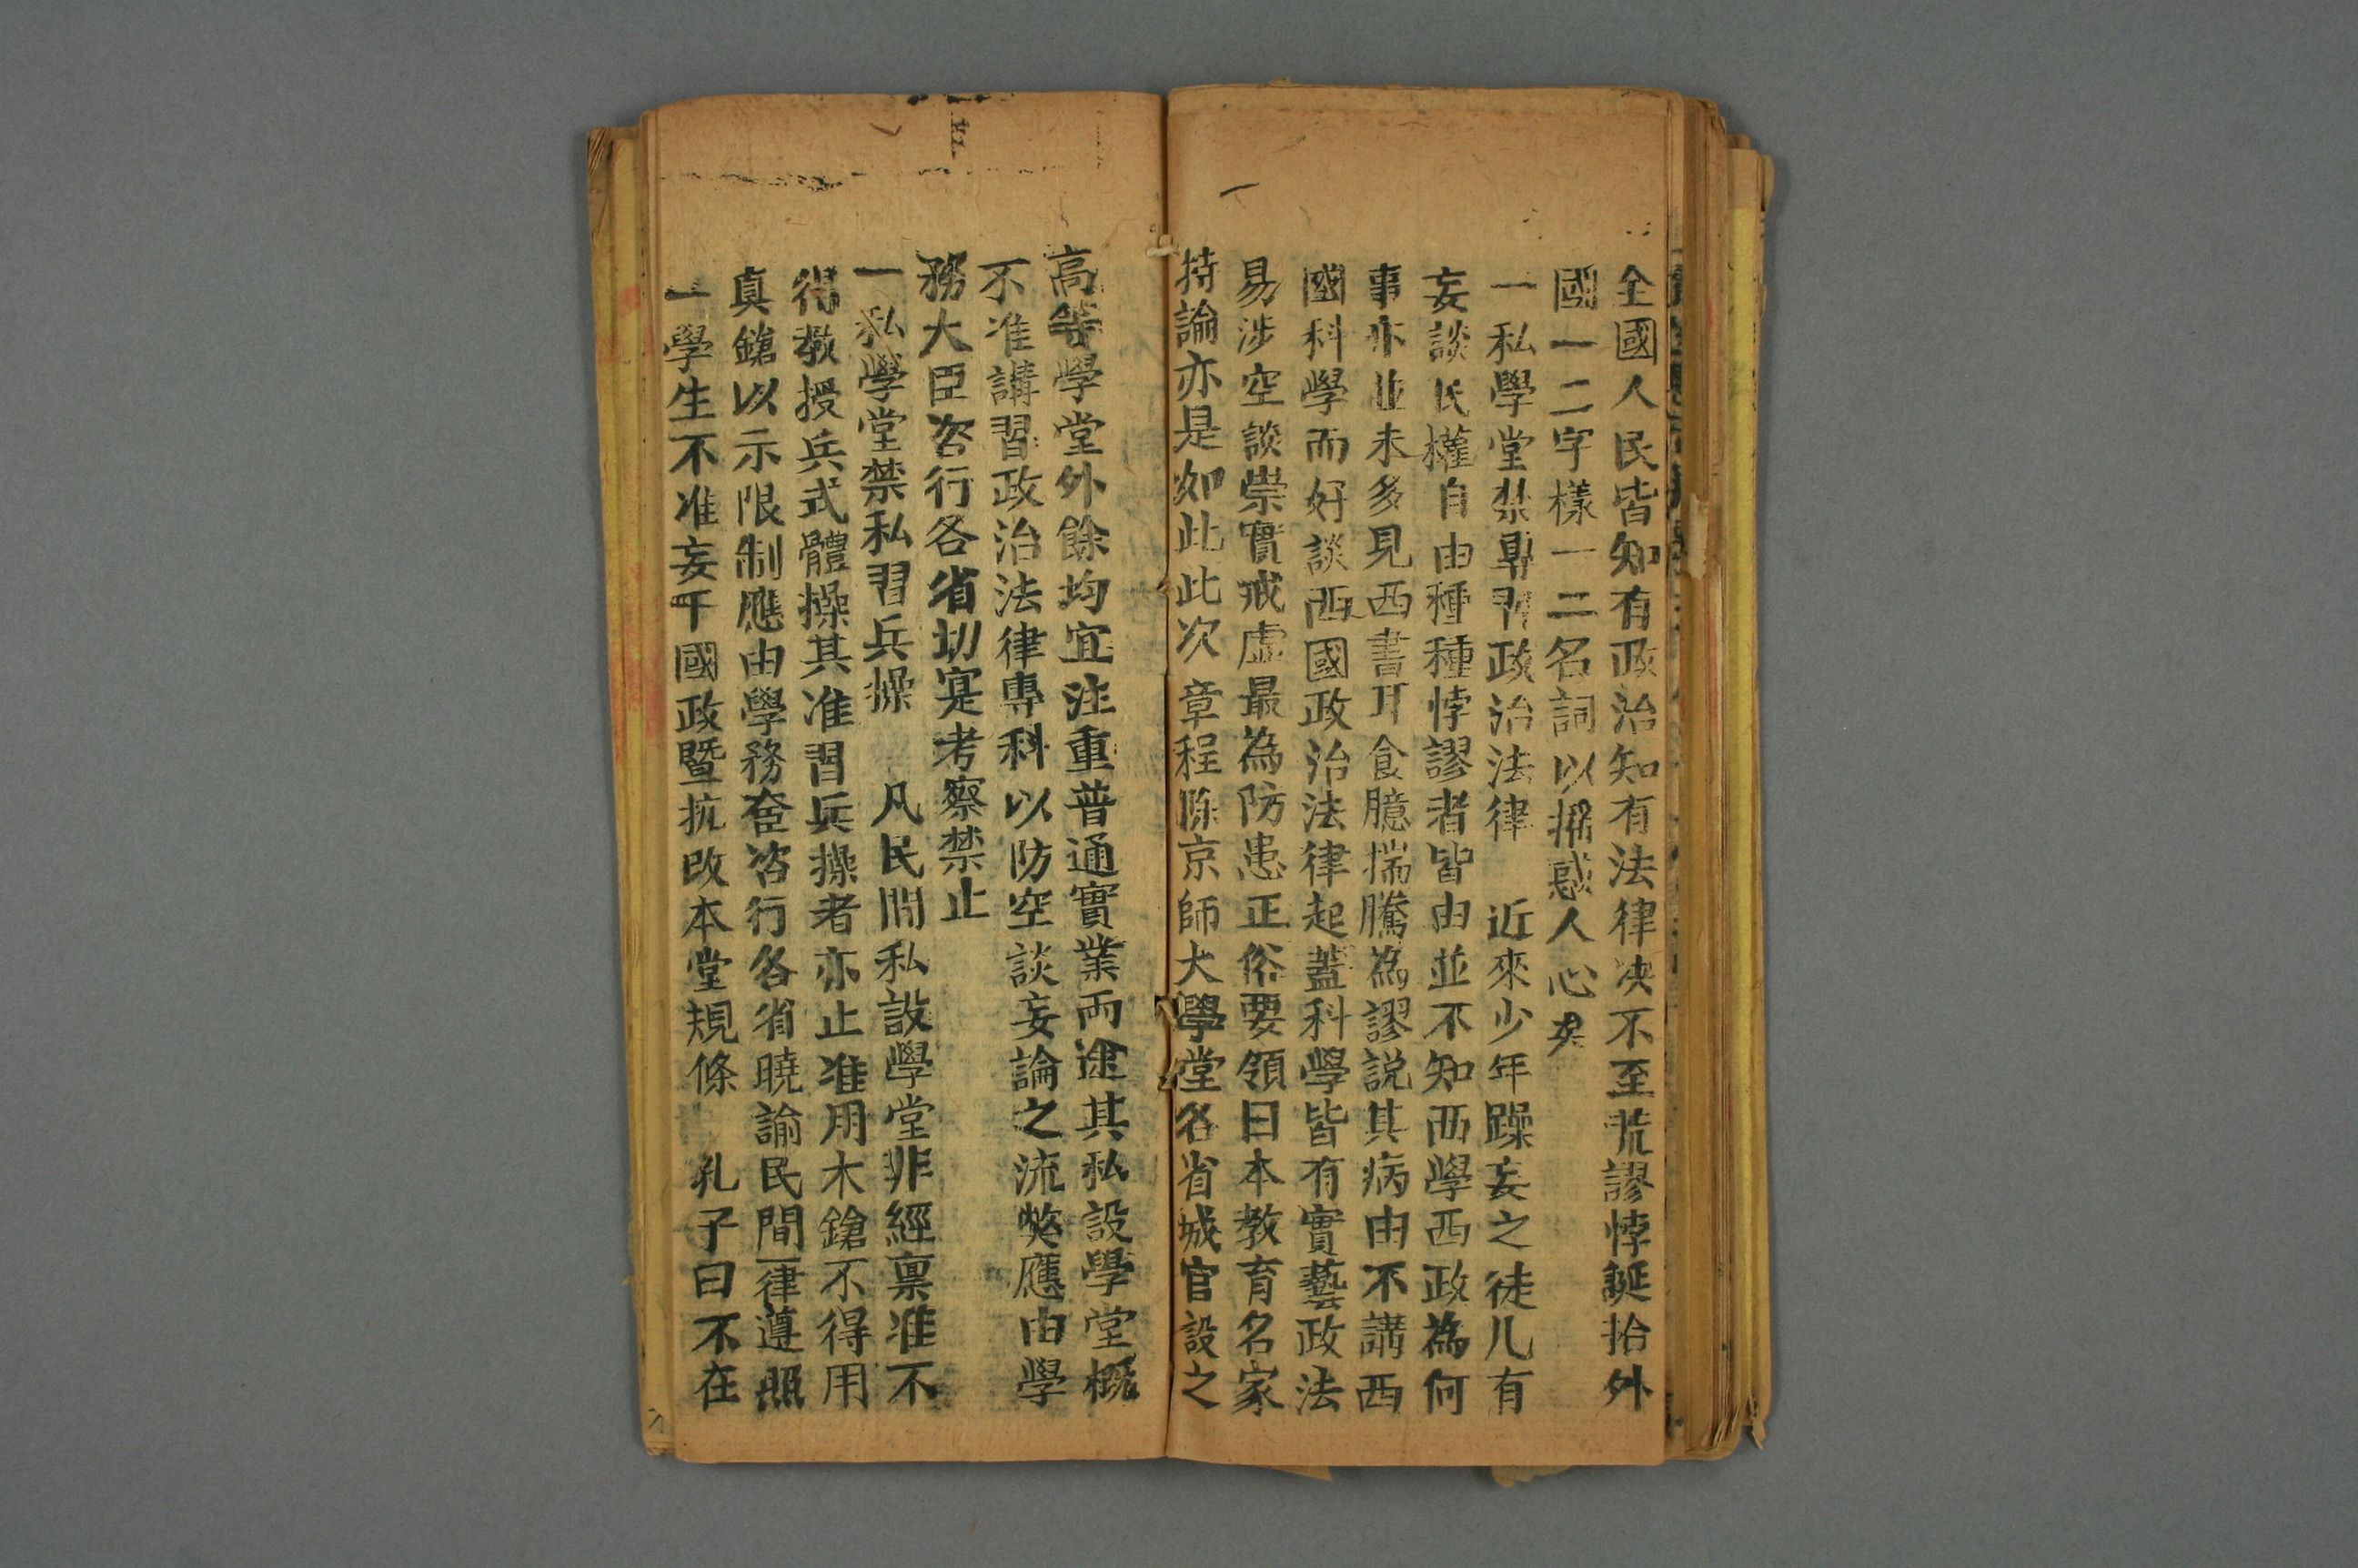 全國人民皆知有政治知有法律決不至荒謬悖誕拾外
國一二字樣一二名詞以搖惑人心矣
一私學堂禁專習政治法律　近來少年躁妄之徒凡有
妄談民權自由種種悖謬者皆由並不知西學西政為何
事亦並未多見西書耳食臆揣騰為謬説其病由不講西
國科學而好談西國政治法律起蓋科學皆有實藝政法
易涉空談崇實戒虛最為防患正俗要領日本教育名家
持論亦是如此此次章程除京師大學堂各省城官設之
高等學堂外餘均宜注重普通實業兩途其私設學堂概
不准講習政治法律專科以防空談妄論之流獘應由學
務大臣咨行各省切寔考察禁止
一私學堂禁私習兵操　凡民間私設學堂非經稟准不
得教授兵式體操其准習兵操者亦止准用木鎗不得用
真鎗以示限制應由學務大臣咨行各省曉諭民間一律遵照
一學生不准妄干國政暨抗改本堂規條　孔子曰不在